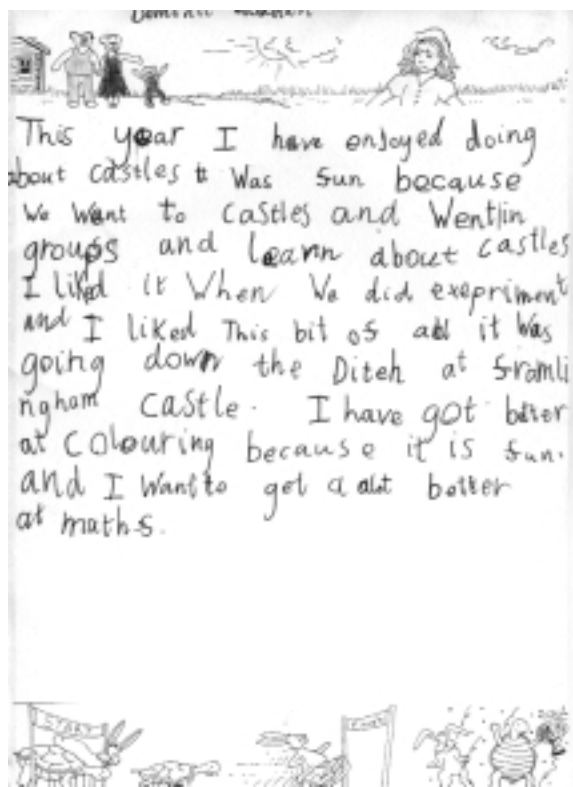 This year I have enjoyed doing
about castles it Was fun because
We Want to castles and Went in
groups and learn about castles
I liked it When We did exepriment
and I liked This bit of all it Was
going down the Ditch at framli
ngham castle. I have got better
at colouring because it is fun.
and I Want to get a alot better
at maths.
START